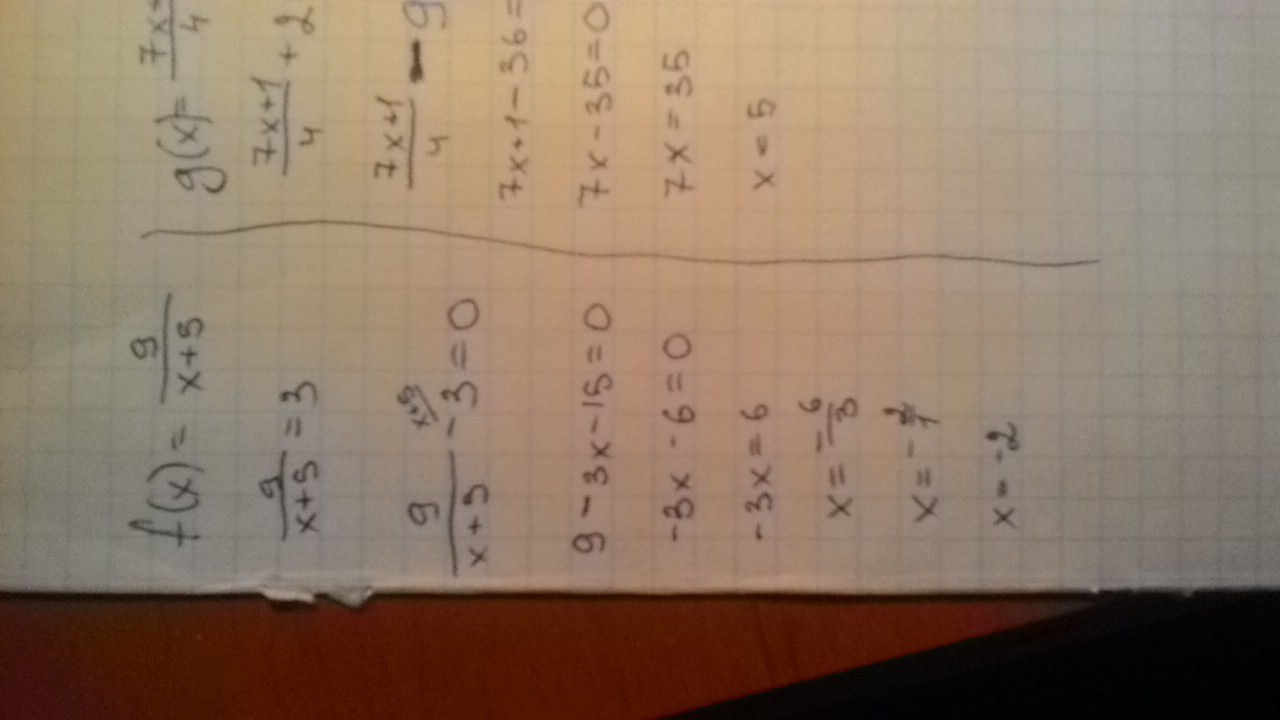 f(x) = 9/(x+5)
9/(x+5) = 3
9/(x+5) - 3 = 0
x+5
9 - 3x - 15 = 0
-3x - 6 = 0
-3x = 6
x = - 6/3
x = - 2/1
x = -2
g(x) = 7x+
4
(7x+1)/4 + 2
(7x+1)/4 - 9
7x+1-36=
7x-35=0
7x=35
x=5